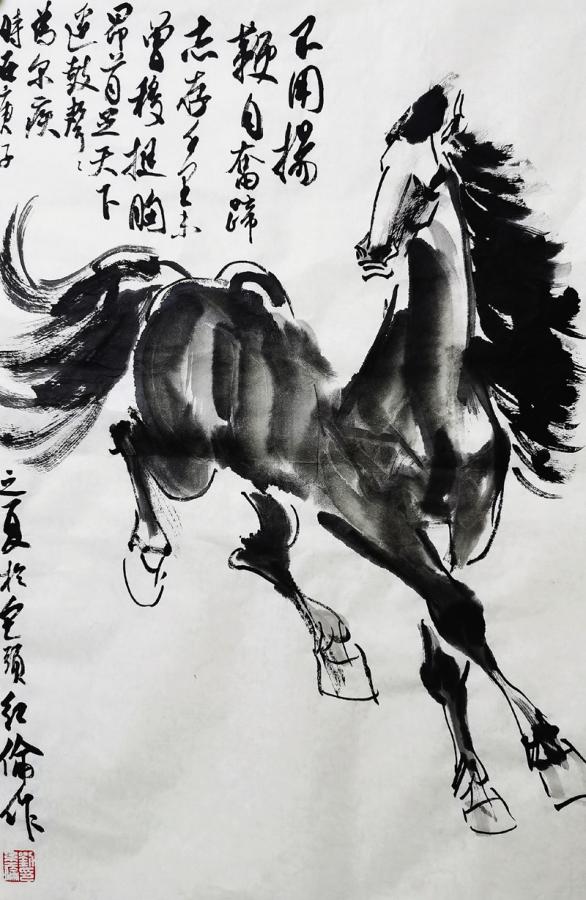 不用揚
鞭自奮蹄
志存千里未
曾移挺胸
昂首走天下
迎鼓聲
為尔
時在庚子
之夏於包頭紅倫作